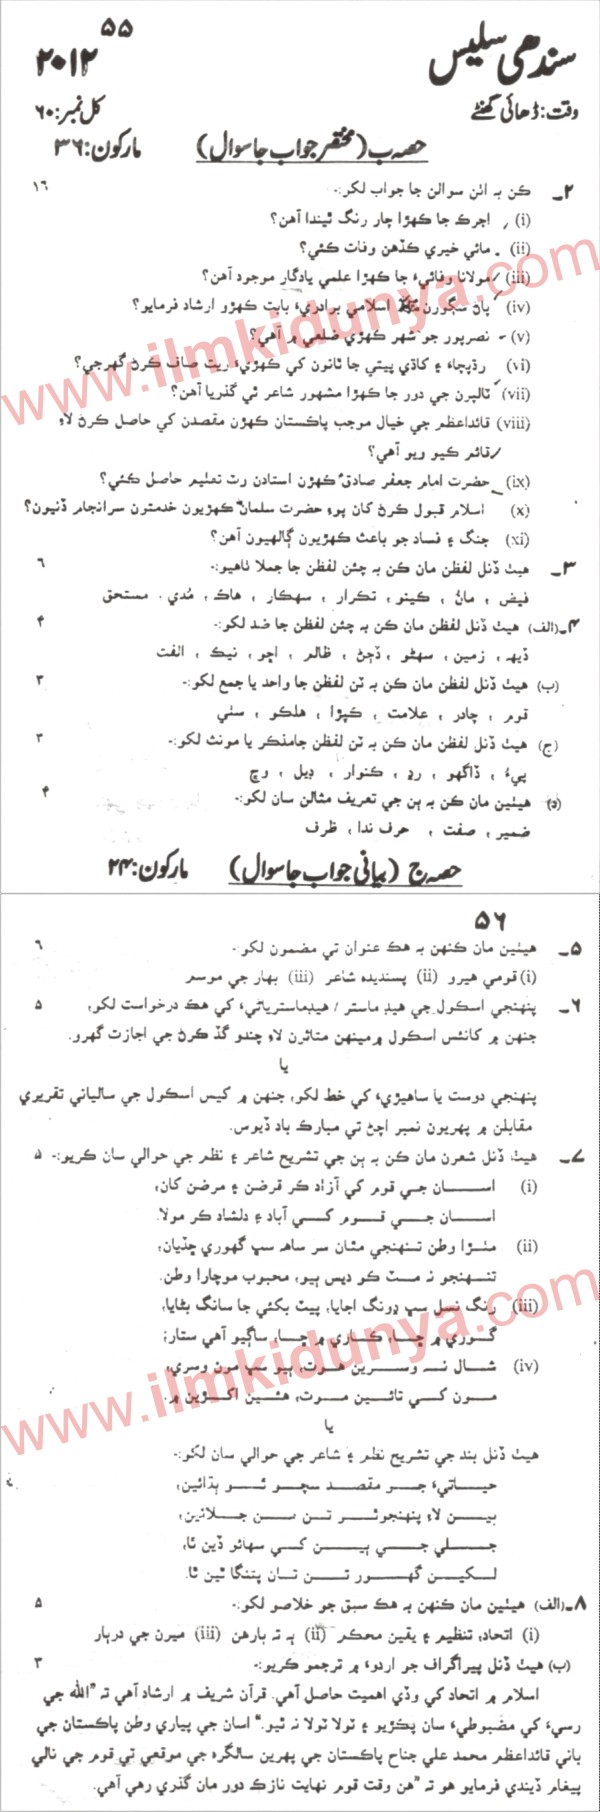 ۵۵
سندھی سلیس ۲۰۱۲
وقت: ڈھائی گھنٹے کل نمبر: ۶۰
حصہ ب (مختصر جواب جا سوال) مارکون: ۳۶
۲_ ڪن بہ اٺن سوالن جا جواب لکو:- ۱۶
(i) اجرڪ جا ڪهڙا چار رنگ ٿيندا آهن؟
(ii) مائي خيري ڪڏهن وفات ڪئي؟
(iii) مولانا وفائيءَ جا ڪهڙا علمي يادگار موجود آهن؟
(iv) پاڻ سڳورن ﷺ اسلامي برادريءَ بابت ڪهڙو ارشاد فرمايو؟
(v) نصرپور جو شهر ڪهڙي ضلعي ۾ آهي؟
(vi) رڌپچاءَ ۽ کاڌي پيتي جا ٿانون کي ڪهڙيءَ ريت صاف ڪرڻ گهرجي؟
(vii) ٽالپرن جي دور جا ڪهڙا مشهور شاعر ٿي گذريا آهن؟
(viii) قائداعظم جي خيال موجب پاڪستان ڪهڙن مقصدن کي حاصل ڪرڻ لاءِ
قائم ڪيو ويو آهي؟
(ix) حضرت امام جعفر صادق ڪهڙن استادن وٽ تعليم حاصل ڪئي؟
(x) اسلام قبول ڪرڻ کان پوءِ حضرت سلمان ڪهڙيون خدمتون سرانجام ڏنيون؟
(xi) جنگ ۽ فساد جو باعث ڪهڙيون ڳالهيون آهن؟
۳_ هيٺ ڏنل لفظن مان ڪن بہ چئن لفظن جا جملا ٺاهيو:- ۶
فيض ، مانُ ، ڪينو ، تڪرار ، سهڪار ، هاڪ ، مُدي، مستحق
۴_ (الف) هيٺ ڏنل لفظن مان ڪن بہ چئن لفظن جا ضد لکو:- ۴
ڏيهہ ، زمين ، سهڻو ، ڏڄڻ ، ظالم ، اڇو ، نيڪ ، الفت
(ب) هيٺ ڏنل لفظن مان ڪن بہ ٽن لفظن جا واحد يا جمع لکو:- ۳
قوم ، چادر ، علامت ، ڪپڙا ، هلڪو ، سٺي
(ج) هيٺ ڏنل لفظن مان ڪن بہ ٽن لفظن جا مذڪر يا مونث لکو:- ۳
پيءُ ، ڏاگهو ، رڍ ، ڪنوار ، ڊيل ، وڇ
(د) هيٺين مان ڪن بہ ٻن جي تعريف مثالن سان لکو:- ۴
ضمير ، صفت ، حرف ندا ، ظرف
حصہ ج (بیانی جواب جا سوال) مارکون: ۲۴
۵۶
۵_ هيٺين مان ڪنهن بہ هڪ عنوان تي مضمون لکو:- ۶
(i) قومي هيرو (ii) پسنديده شاعر (iii) بهار جي موسم
۶_ پنهنجي اسڪول جي هيڊ ماستر / هيڊماسترياڻيءَ کي هڪ درخواست لکو، ۵
جنهن ۾ کانئس اسڪول ۾ مينهن متاثرن لاءِ چندو گڏ ڪرڻ جي اجازت گهرو.
يا
پنهنجي دوست يا ساهيڙيءَ کي خط لکو، جنهن ۾ کيس اسڪول جي سالياني تقريري
مقابلن ۾ پهريون نمبر اچڻ تي مبارڪ باد ڏيوس.
۷_ هيٺ ڏنل شعرن مان ڪن بہ ٻن جي تشريح شاعر ۽ نظم جي حوالي سان ڪريو:- ۵
(i) اسان جي قوم کي آزاد ڪر قرضن ۽ مرضن کان،
اسان جي قوم کي آباد ۽ دلشاد ڪر مولا.
(ii) منڙا وطن تنهنجي مٿان سر ساهہ سڀ گهوري ڇڏيان،
تنهنجو نہ مٽ ڪو ديس ٻيو، محبوب موچارا وطن.
(iii) رنگ نسل سڀ ڍونگ اجايا، پيٽ بکئي جا سانگ بڻايا،
گوري ۾ ڇا، ڪاري ۾ ڇا، ساڳيو آهي ستار؛
(iv) شال نہ وسرين هوت، ٻيو سڀ مون وسري،
مون کي تائين موت، هئين اکڙين ۾.
يا
هيٺ ڏنل بند جي تشريح نظم ۽ شاعر جي حوالي سان لکو:-
حياتيءَ جو مقصد سچو ٿو ٻڌائين،
ٻين لاءِ پنهنجو تن من جلائين،
جلي جي ٻين کي سهائو ڏين ٿا،
لکين گهور تن تان پتنگا ٿين ٿا.
۸_ (الف) هيٺين مان ڪنهن بہ هڪ سبق جو خلاصو لکو:- ۵
(i) اتحاد، تنظيم ۽ يقين محڪم (ii) ٻہ ٻارهن (iii) ميرن جي درٻار
(ب) هيٺ ڏنل پيراگراف جو اردوءَ ۾ ترجمو ڪريو:- ۳
اسلام ۾ اتحاد کي وڏي اهميت حاصل آهي. قرآن شريف ۾ ارشاد آهي تہ ”الله جي
رسيءَ کي مضبوطيءَ سان پڪڙيو ۽ ٽولا ٽولا نہ ٿيو.“ اسان جي پياري وطن پاڪستان جي
باني قائداعظم محمد علي جناح پاڪستان جي پهرين سالگره جي موقعي تي قوم جي نالي
پيغام ڏيندي فرمايو هو تہ ”هن وقت قوم نهايت نازڪ دور مان گذري رهي آهي.
www.ilmkidunya.com
www.ilmkidunya.com